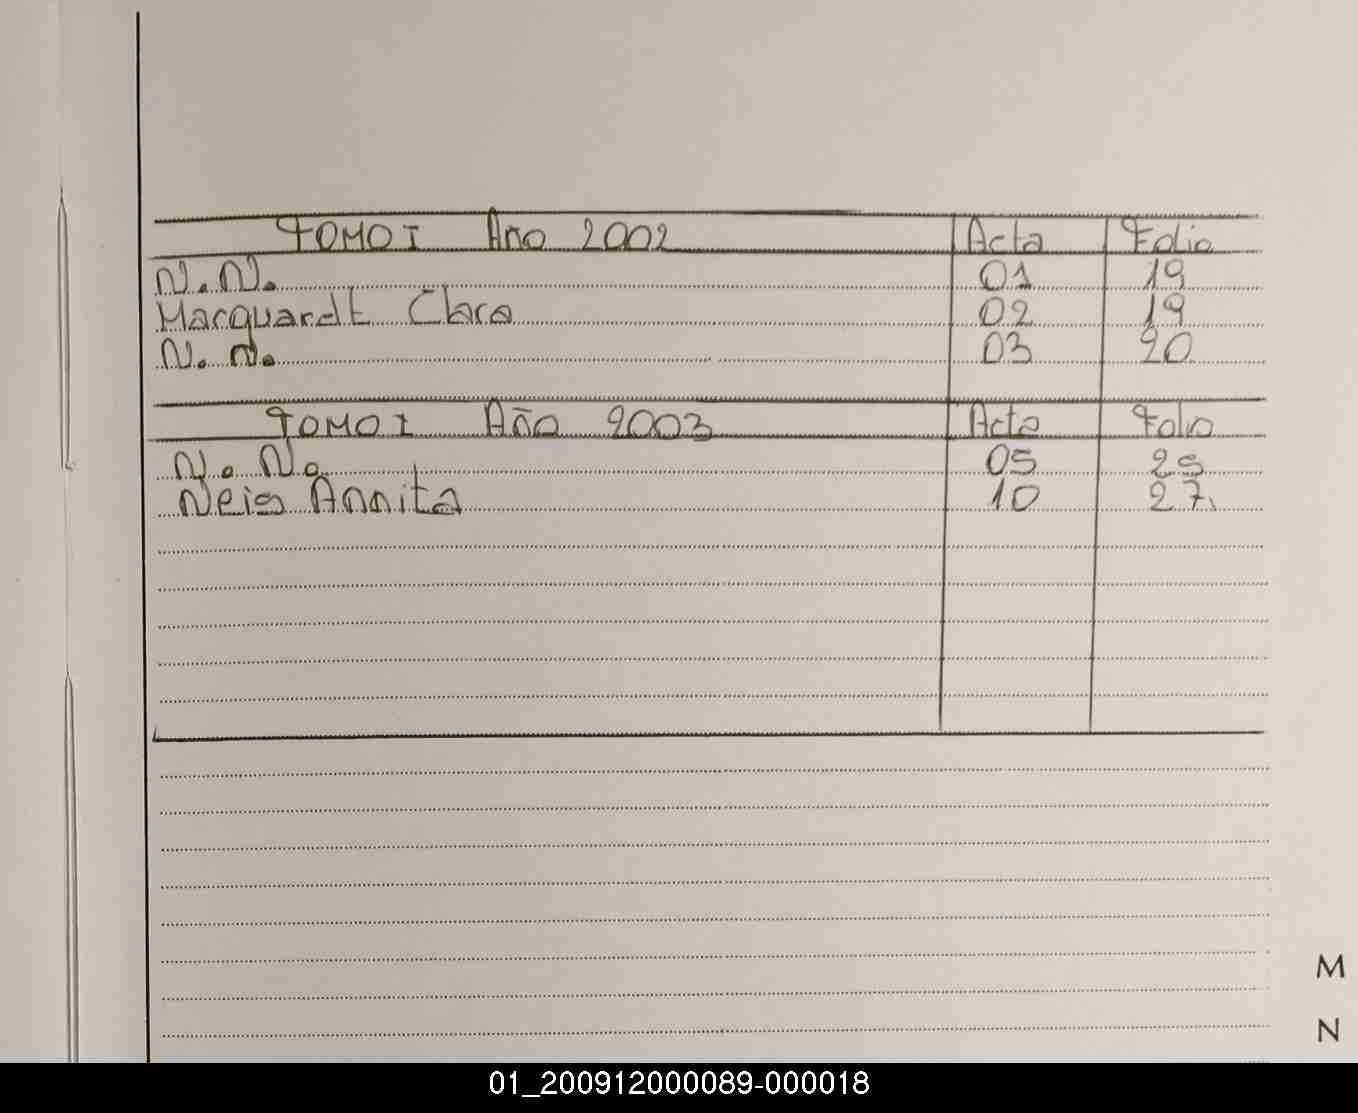 TOMO I Año 2002 Acta Folio
N. N. 01 19
Marquardt Clara 02 19
N. N. 03 20
TOMO I Año 2003 Acta Folio
N. N. 05 25
Neis Annita 10 27
M
N
01_200912000089-000018